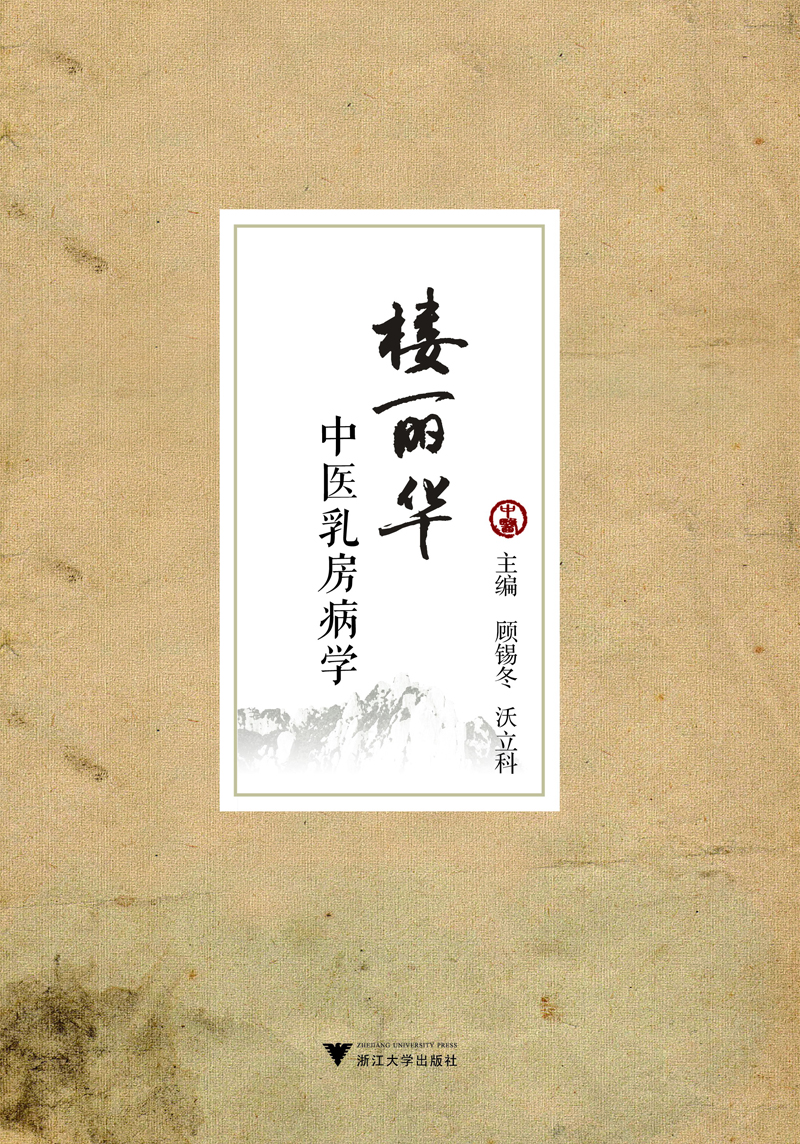 楼丽华
中医乳房病学
中醫
主编 顾锡冬 沃立科
ZHEJIANG UNIVERSITY PRESS
浙江大学出版社